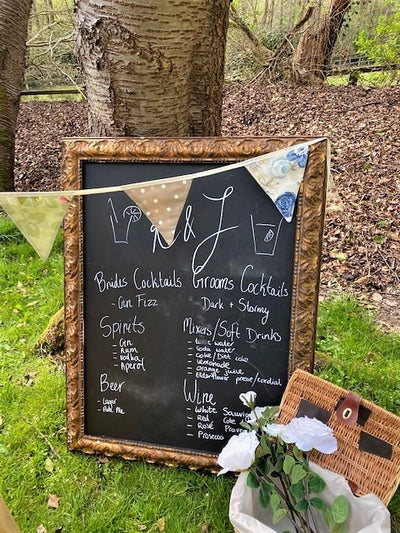 & J
Brides Cocktails
- Gin Fizz
Grooms Cocktails
- Dark + Stormy
Spirits
- Gin
- Rum
- Vodka
- Aperol
Mixers/Soft Drinks
- water
- Soda water
- Coke/Diet coke
- Lemonade
- orange juice
- Elderflower presse/cordial
Beer
- Lager
- Pale Ale
Wine
- White Sauvig
- Red Cote
- Rosé Prov
- Prosecco